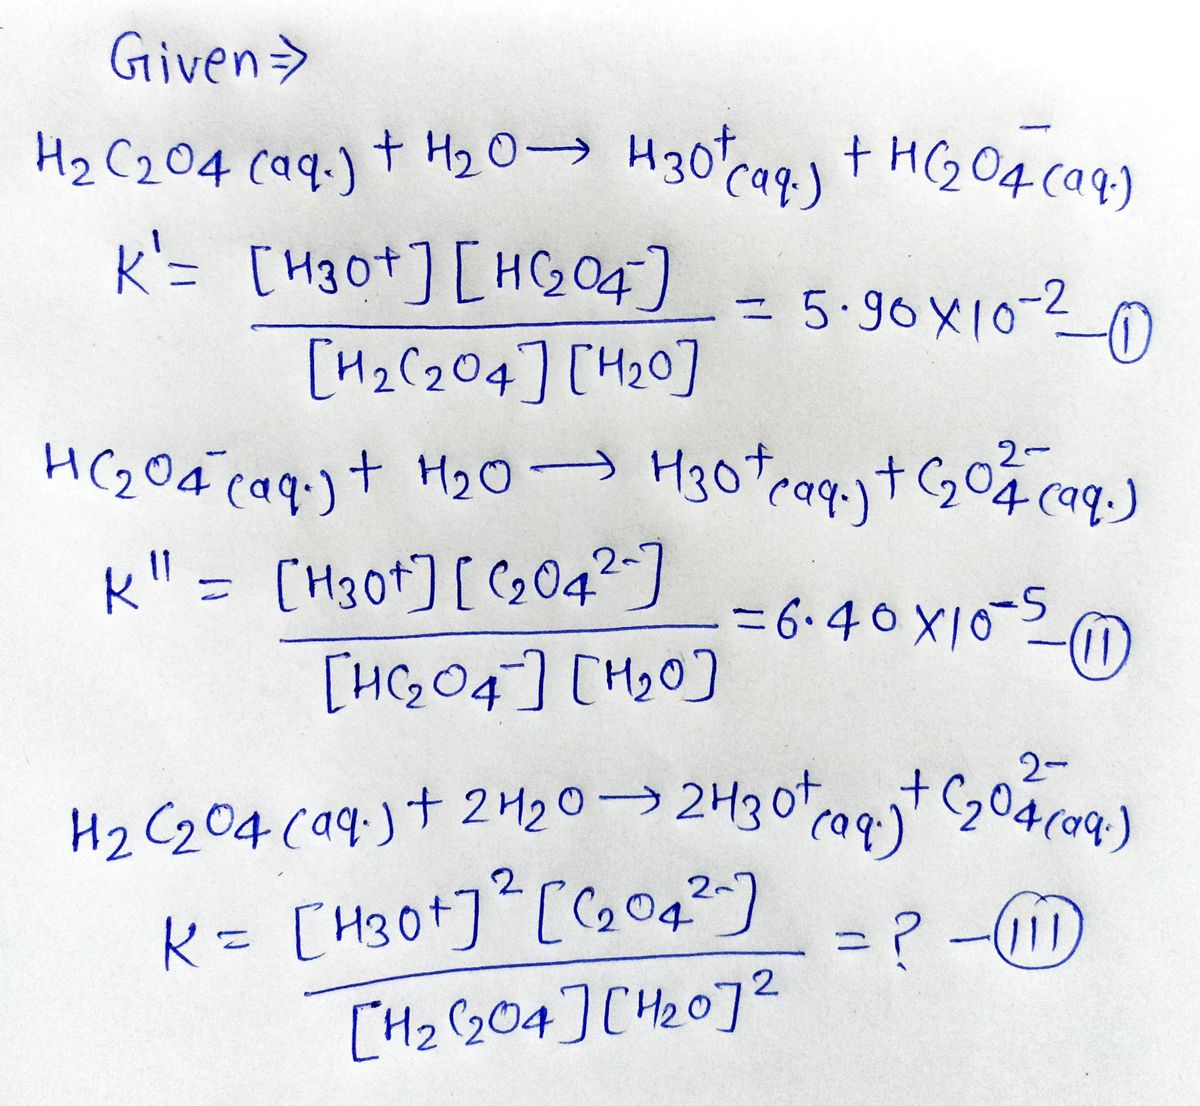 Given ⇒
H₂C₂O₄ (aq.) + H₂O → H₃O⁺(aq.) + HC₂O₄⁻(aq.)
K' = [H₃O⁺] [HC₂O₄⁻] / [H₂C₂O₄] [H₂O] = 5.90 X 10⁻² – Ⓘ
HC₂O₄⁻(aq.) + H₂O → H₃O⁺(aq.) + C₂O₄²⁻(aq.)
K'' = [H₃O⁺] [C₂O₄²⁻] / [HC₂O₄⁻] [H₂O] = 6.40 X 10⁻⁵ – (II)
H₂C₂O₄ (aq.) + 2H₂O → 2H₃O⁺(aq.) + C₂O₄²⁻(aq.)
K = [H₃O⁺]² [C₂O₄²⁻] / [H₂C₂O₄] [H₂O]² = ? – (III)